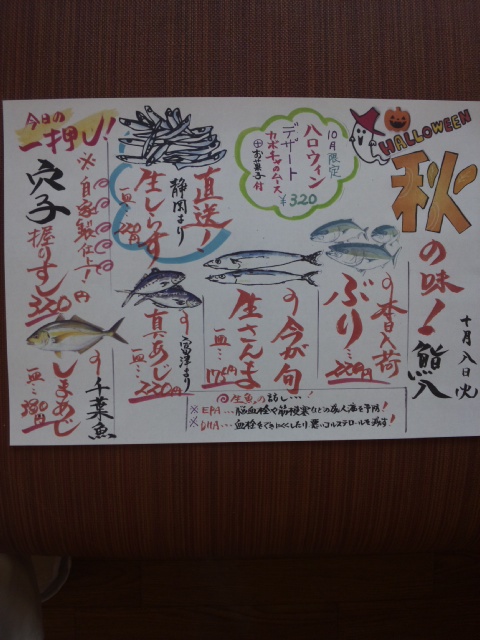 HALLOWEEN
秋
の味!
鮨八
十月八日(火)
10月限定
ハロウィン
デザート
カボチャのムース
お菓子付
¥320
本日入荷
ぶり
今が旬
生さんま
一皿…175円
富津より
真あじ
一皿…
直送!
静岡より
生しらす
一皿…
今日の
一押し!
※自家製仕上!
穴子
握りすし
350円
千葉魚
しまあじ
一皿…380円
生魚の話し…!
※EPA…脳血栓や筋梗塞などの成人病を予防!
※DHA…血栓をできにくくしたり悪いコルステロールを減す